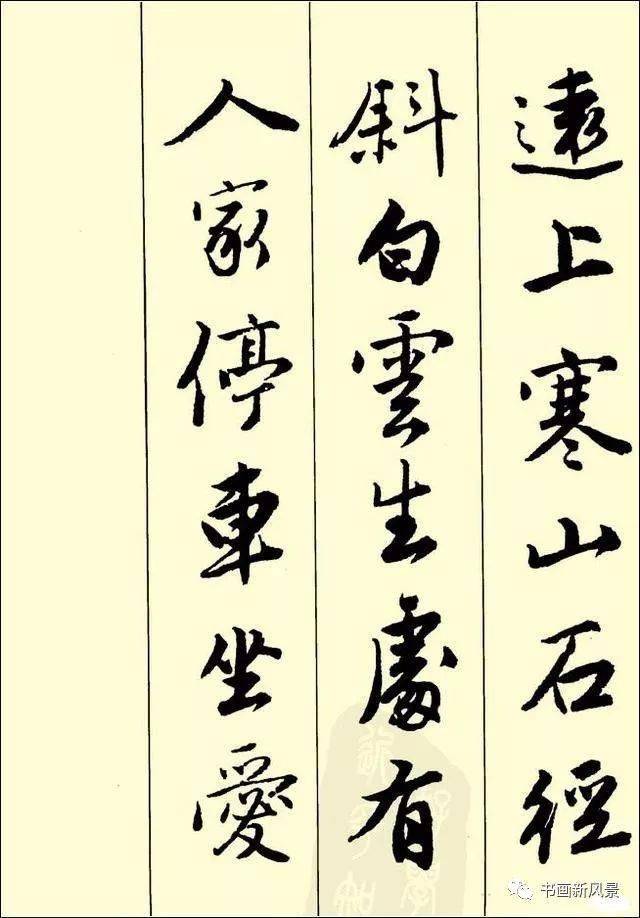 遠上寒山石徑
斜白雲生處有
人家停車坐愛
书画新风景